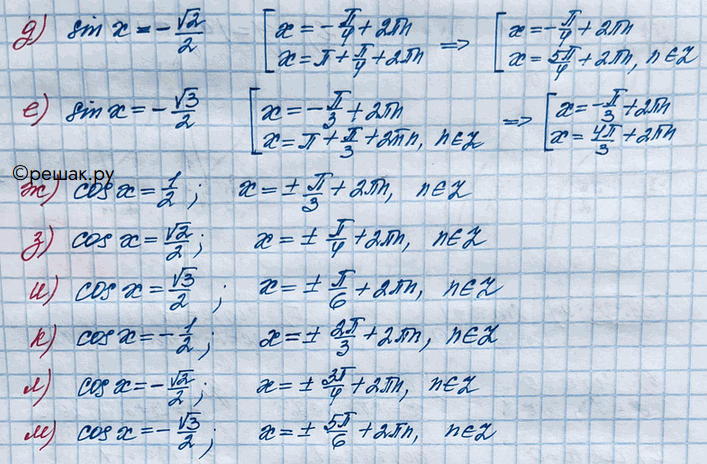 д) sin x = -√2/2 [x = -π/4 + 2πn x = π + π/4 + 2πn => [x = -π/4 + 2πn x = 5π/4 + 2πn, n∈Z
е) sin x = -√3/2 [x = -π/3 + 2πn x = π + π/3 + 2πn, n∈Z => [x = -π/3 + 2πn x = 4π/3 + 2πn
©решак.ру
ж) cos x = 1/2; x = ± π/3 + 2πn, n∈Z
з) cos x = √2/2; x = ± π/4 + 2πn, n∈Z
и) cos x = √3/2; x = ± π/6 + 2πn, n∈Z
к) cos x = -1/2; x = ± 2π/3 + 2πn, n∈Z
л) cos x = -√2/2; x = ± 3π/4 + 2πn, n∈Z
м) cos x = -√3/2; x = ± 5π/6 + 2πn, n∈Z